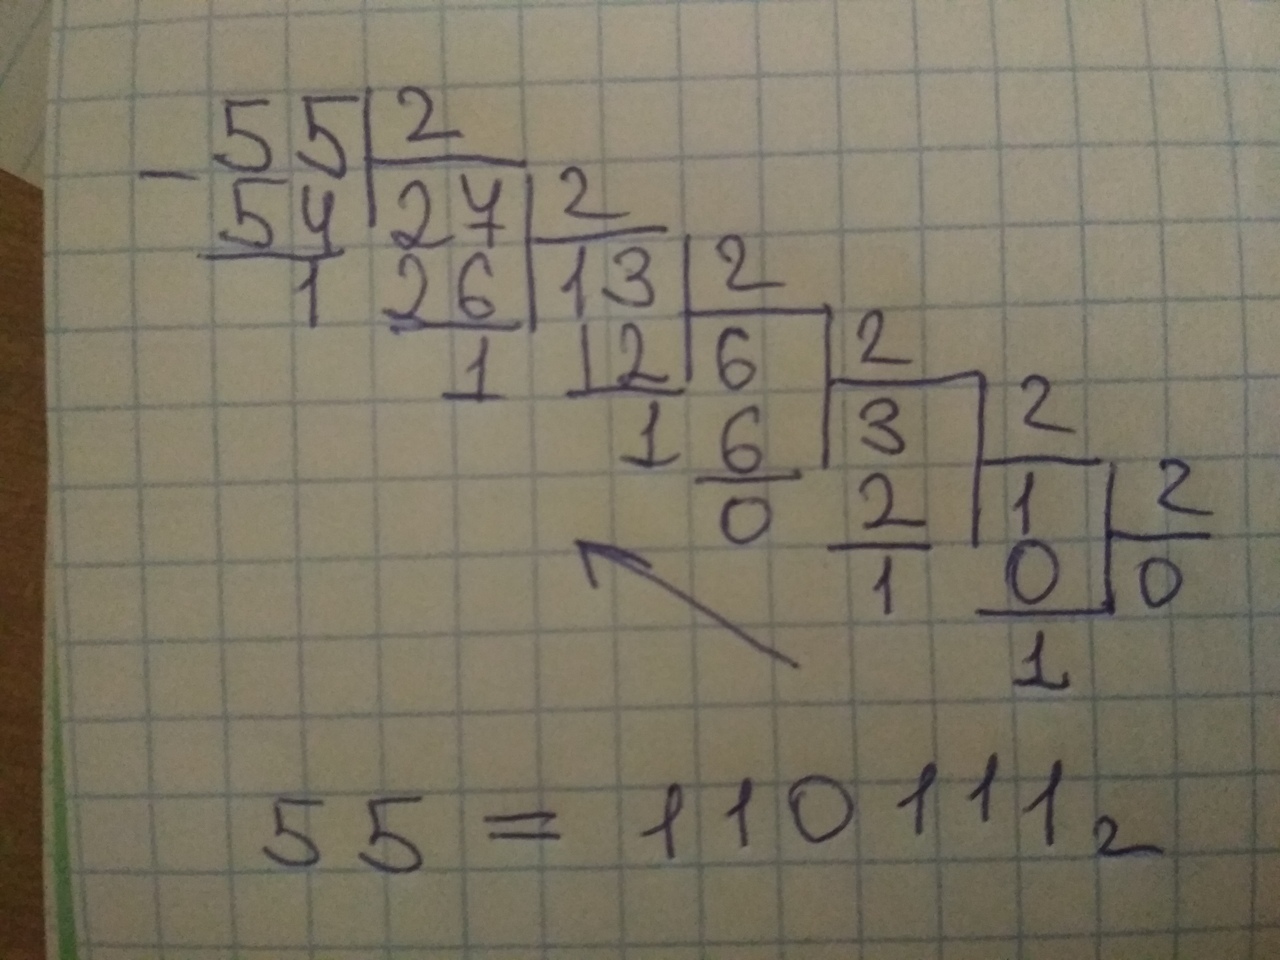 55 2
- 54 27 2
1 26 13 2
1 12 6 2
1 6 3 2
0 2 1 2
1 0 0
1
55 = 110111₂